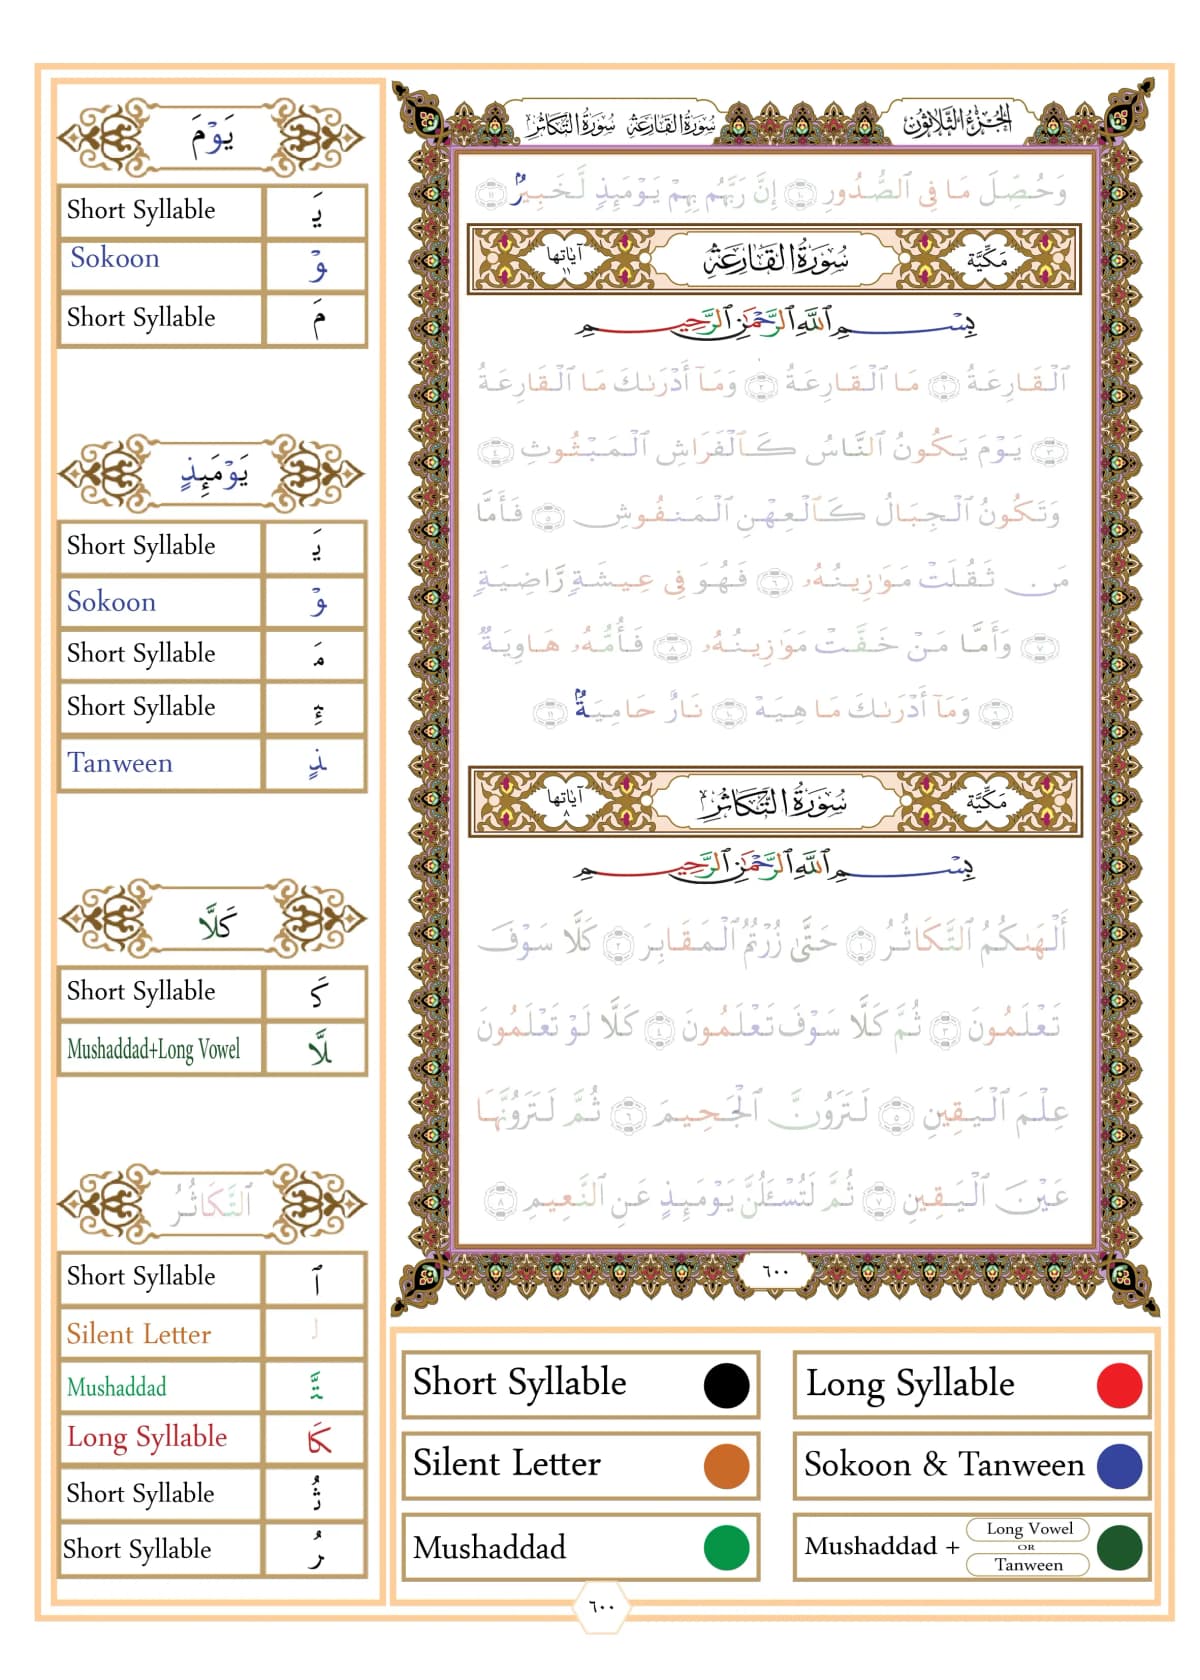 الجزء الثلاثون
سورة القارعة سورة التكاثر
وَحُصِّلَ مَا فِي ٱلصُّدُورِ ١٠ إِنَّ رَبَّهُم بِهِمْ يَوْمَئِذٍ لَّخَبِيرٌۢ ١١
مَكِّيَّة سُورَةُ الْقَارِعَةِ آياتها ١١
بِسْمِ ٱللَّهِ ٱلرَّحْمَٰنِ ٱلرَّحِيمِ
ٱلْقَارِعَةُ ١ مَا ٱلْقَارِعَةُ ٢ وَمَآ أَدْرَىٰكَ مَا ٱلْقَارِعَةُ
٣ يَوْمَ يَكُونُ ٱلنَّاسُ كَٱلْفَرَاشِ ٱلْمَبْثُوثِ ٤
وَتَكُونُ ٱلْجِبَالُ كَٱلْعِهْنِ ٱلْمَنفُوشِ ٥ فَأَمَّا
مَن ثَقُلَتْ مَوَٰزِينُهُۥ ٦ فَهُوَ فِي عِيشَةٍ رَّاضِيَةٍ
٧ وَأَمَّا مَنْ خَفَّتْ مَوَٰزِينُهُۥ ٨ فَأُمُّهُۥ هَاوِيَةٌ
٩ وَمَآ أَدْرَىٰكَ مَا هِيَهْ ١٠ نَارٌ حَامِيَةٌۢ ١١
مَكِّيَّة سُورَةُ التَّكَاثُرِ آياتها ٨
بِسْمِ ٱللَّهِ ٱلرَّحْمَٰنِ ٱلرَّحِيمِ
أَلْهَىٰكُمُ ٱلتَّكَاثُرُ ١ حَتَّىٰ زُرْتُمُ ٱلْمَقَابِرَ ٢ كَلَّا سَوْفَ
تَعْلَمُونَ ٣ ثُمَّ كَلَّا سَوْفَ تَعْلَمُونَ ٤ كَلَّا لَوْ تَعْلَمُونَ
عِلْمَ ٱلْيَقِينِ ٥ لَتَرَوُنَّ ٱلْجَحِيمَ ٦ ثُمَّ لَتَرَوُنَّهَا
عَيْنَ ٱلْيَقِينِ ٧ ثُمَّ لَتُسْـَٔلُنَّ يَوْمَئِذٍ عَنِ ٱلنَّعِيمِ ٨
٦٠٠
يَوْمَ
Short Syllable يَ
Sokoon وْ
Short Syllable مَ
يَوْمَئِذٍ
Short Syllable يَ
Sokoon وْ
Short Syllable مَ
Short Syllable ئِ
Tanween ذٍ
كَلَّا
Short Syllable كَ
Mushaddad+Long Vowel لَّا
ٱلتَّكَاثُرُ
Short Syllable ٱ
Silent Letter ل
Mushaddad تَّ
Long Syllable كَا
Short Syllable ثُ
Short Syllable رُ
Short Syllable
Long Syllable
Silent Letter
Sokoon & Tanween
Mushaddad
Mushaddad + Long Vowel OR Tanween
٦٠٠